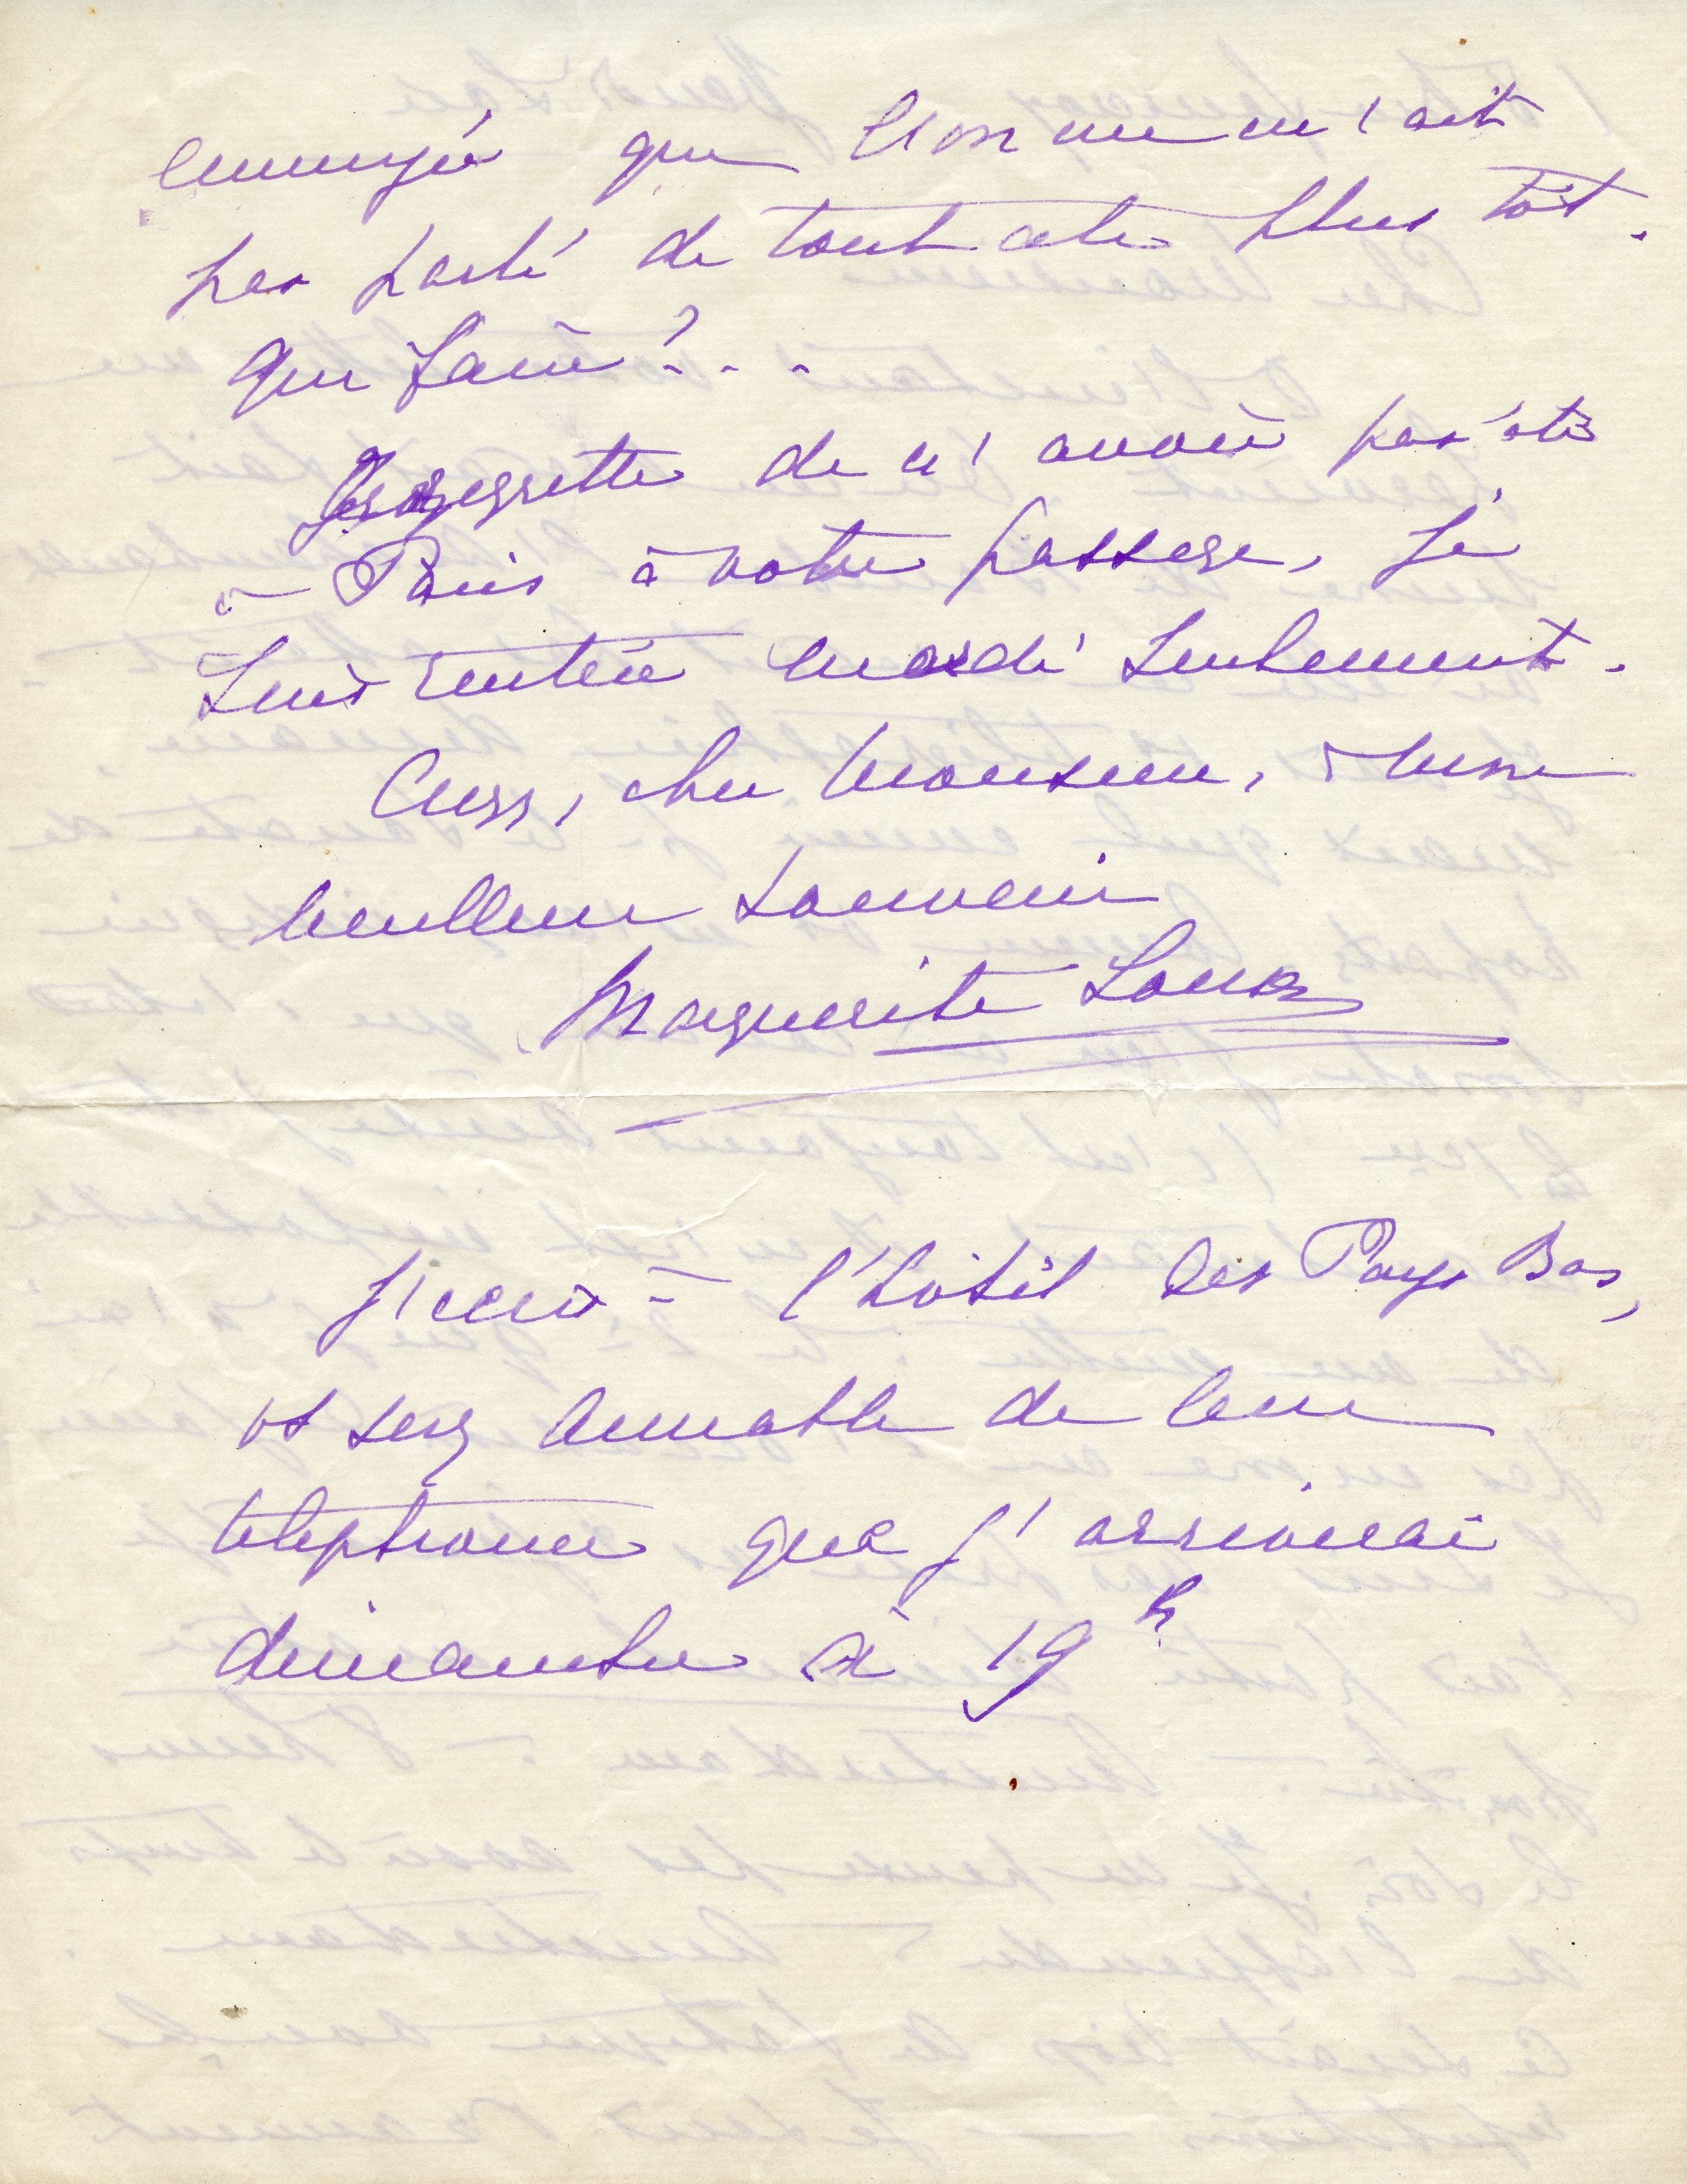 ennuyée que l'on ne m'ait
pas parlé de tout cela plus tôt.
que faire ?...
Je regrette de n'avoir pas été
à Paris à votre passage, je
suis rentrée mardi seulement.
Cher Monsieur,
meilleur souvenir
Marguerite Long
J'irai à l'hôtel des Pays Bas,
vs serez aimable de leur
téléphoner que j'arriverai
dimanche à 19 h